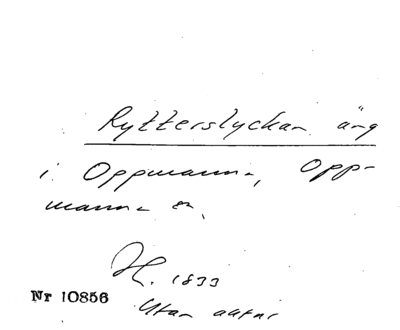 Rytterslyckan äng
i Oppmanna, Opp-
manna sn.
H. 1833
Nr 10856
Utan aktnr